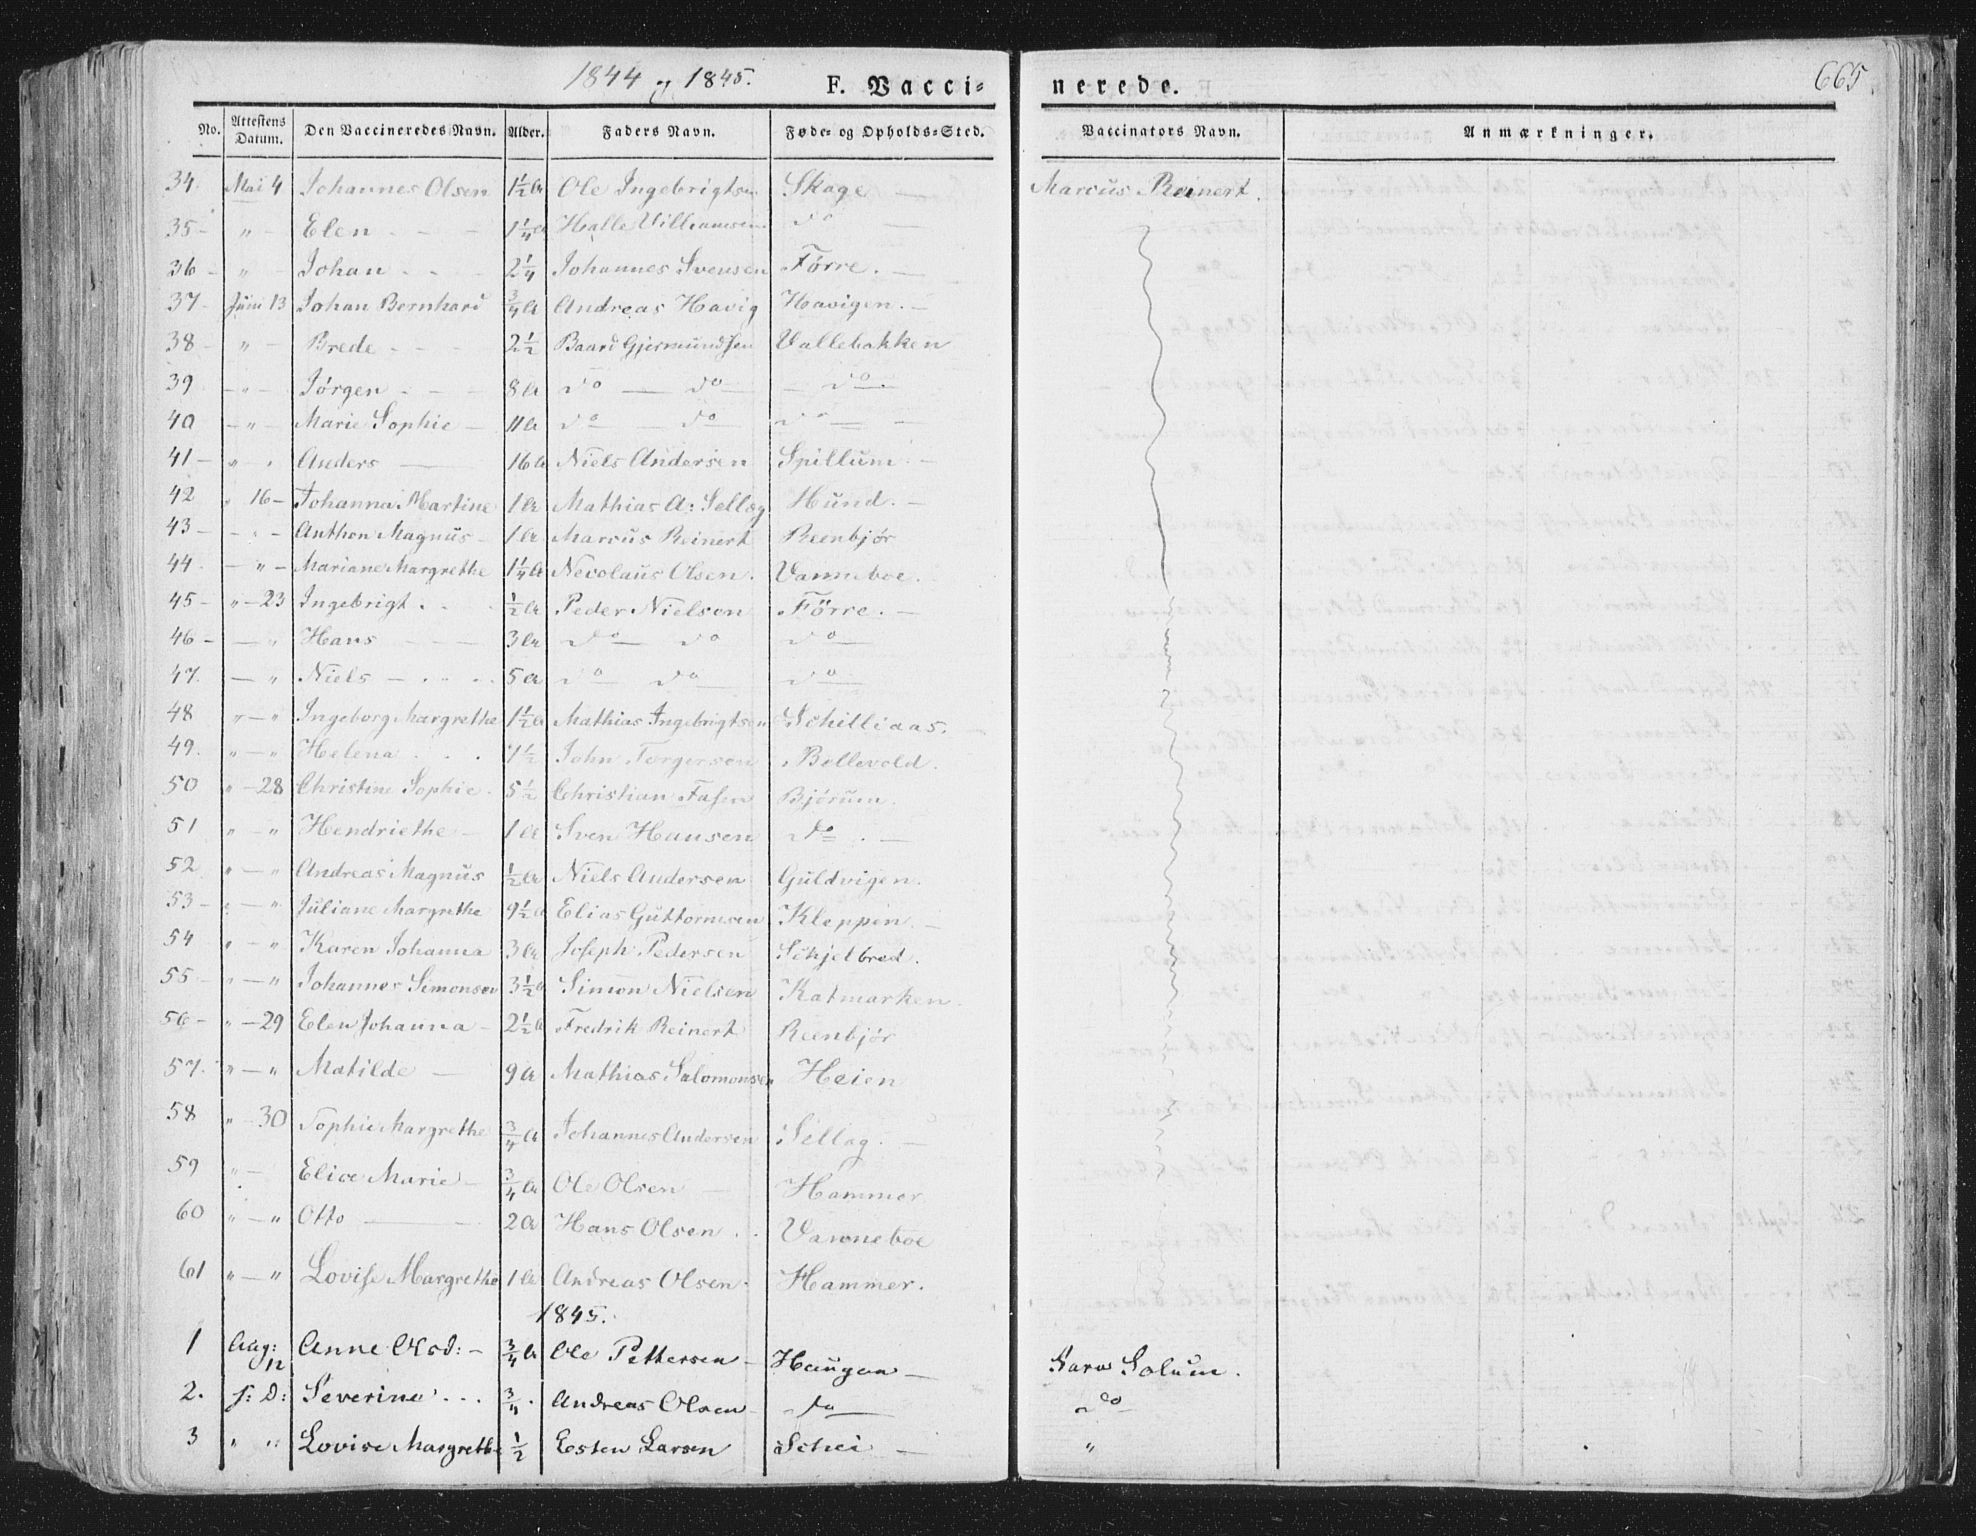 1844 og 1845. F. Vacci= nerede. 665
No. Attestens Datum. Den Vaccineredes Navn. Alder. Faders Navn. Føde- og Opholds-Sted. Vaccinators Navn. Anmærkninger.
34. Mai 4 Johannes Olsen 1½ a Ole Ingebrigtsen Skage — Marcus Reinert.
35 - " - Elen - - - 1¼ a Halle Villiamsen do —
36 - " - Johan - - - 2¼ Johannes Svensen Förre. —
37 - Juni 13 Johan Bernhard ¾ a Andreas Havig Havigen. —
38 - " - Brede - - - 2½ Baard Gjermundsen Vallebakken
39 - " - Jörgen - - - 8 a do — do — do.
40 - " - Marie Sophie — 11 a do — do do — —
41 - " . Anders — 16 a Niels Andersen Spillum. —
42 " 16 - Johanna Martine 1 a Mathias A: Sellæg Hund. —
43 - - " - Anthon Magnus - 1 a Marcus Reinert Reenbjør
44 - - " - Mariane Margrethe 1¼ a Nevolaus Olsen. Vanneboe.
45 - " - 23 Ingebrigt. . . ½ a Peder Nielson Förre. —
46 - — " Hans - - 3 a do — do do —
47. — " Niels - . . . 5 a do — do do —
48 " — " Ingeborg Margrethe 1½ a Mathias Ingebrigtsen Schilliaas. —
49. " — " Helena . . . 7½ John Torgersen Bellevold.
50 " - 28 Christine Sophie. 5½ Christian Fasen Bjørum.
51 " — " Hendriethe - 1 a Sven Hansen do . —
52 " — " Andreas Magnus ½ a Niels Andersen Guldvigen.
53 - " — " Juliane Margrethe 9½ a Elias Guttormsen Kleppen. —
54 " — " Karen Johanna 3 a Joseph Pedersen Schjelbred.
55 - " — " Johannes Simonsen 3½ a Simon Nielsen Katmarken.
56 - " - 29 Elen Johanna - 2½ a Fredrik Reinert Reenbjör
57. " — " Matilde — 9 a Mathias Salomonsen Heien
58 " - 30 Sophie Margrethe ¾ a Johannes Andersen Sellæg. —
59 " — Elice Marie - ¾ a Ole Olsen — Hammer
60 " — " Otto — - 2 a Hans Olsen . . Vanneboe
61 " — " Lovise Margrethe 1 a Andreas Olsen. Hammer.
1845.
1 Aug: 12 Anne Olsd: - ¾ a Ole Pettersen - Haugan — Solum.
2. s: D: Severine . . . ¾ . Andreas Olsen - do — do
3 " ": Lovise Margrethe ½ Esten Larsen Schei — "